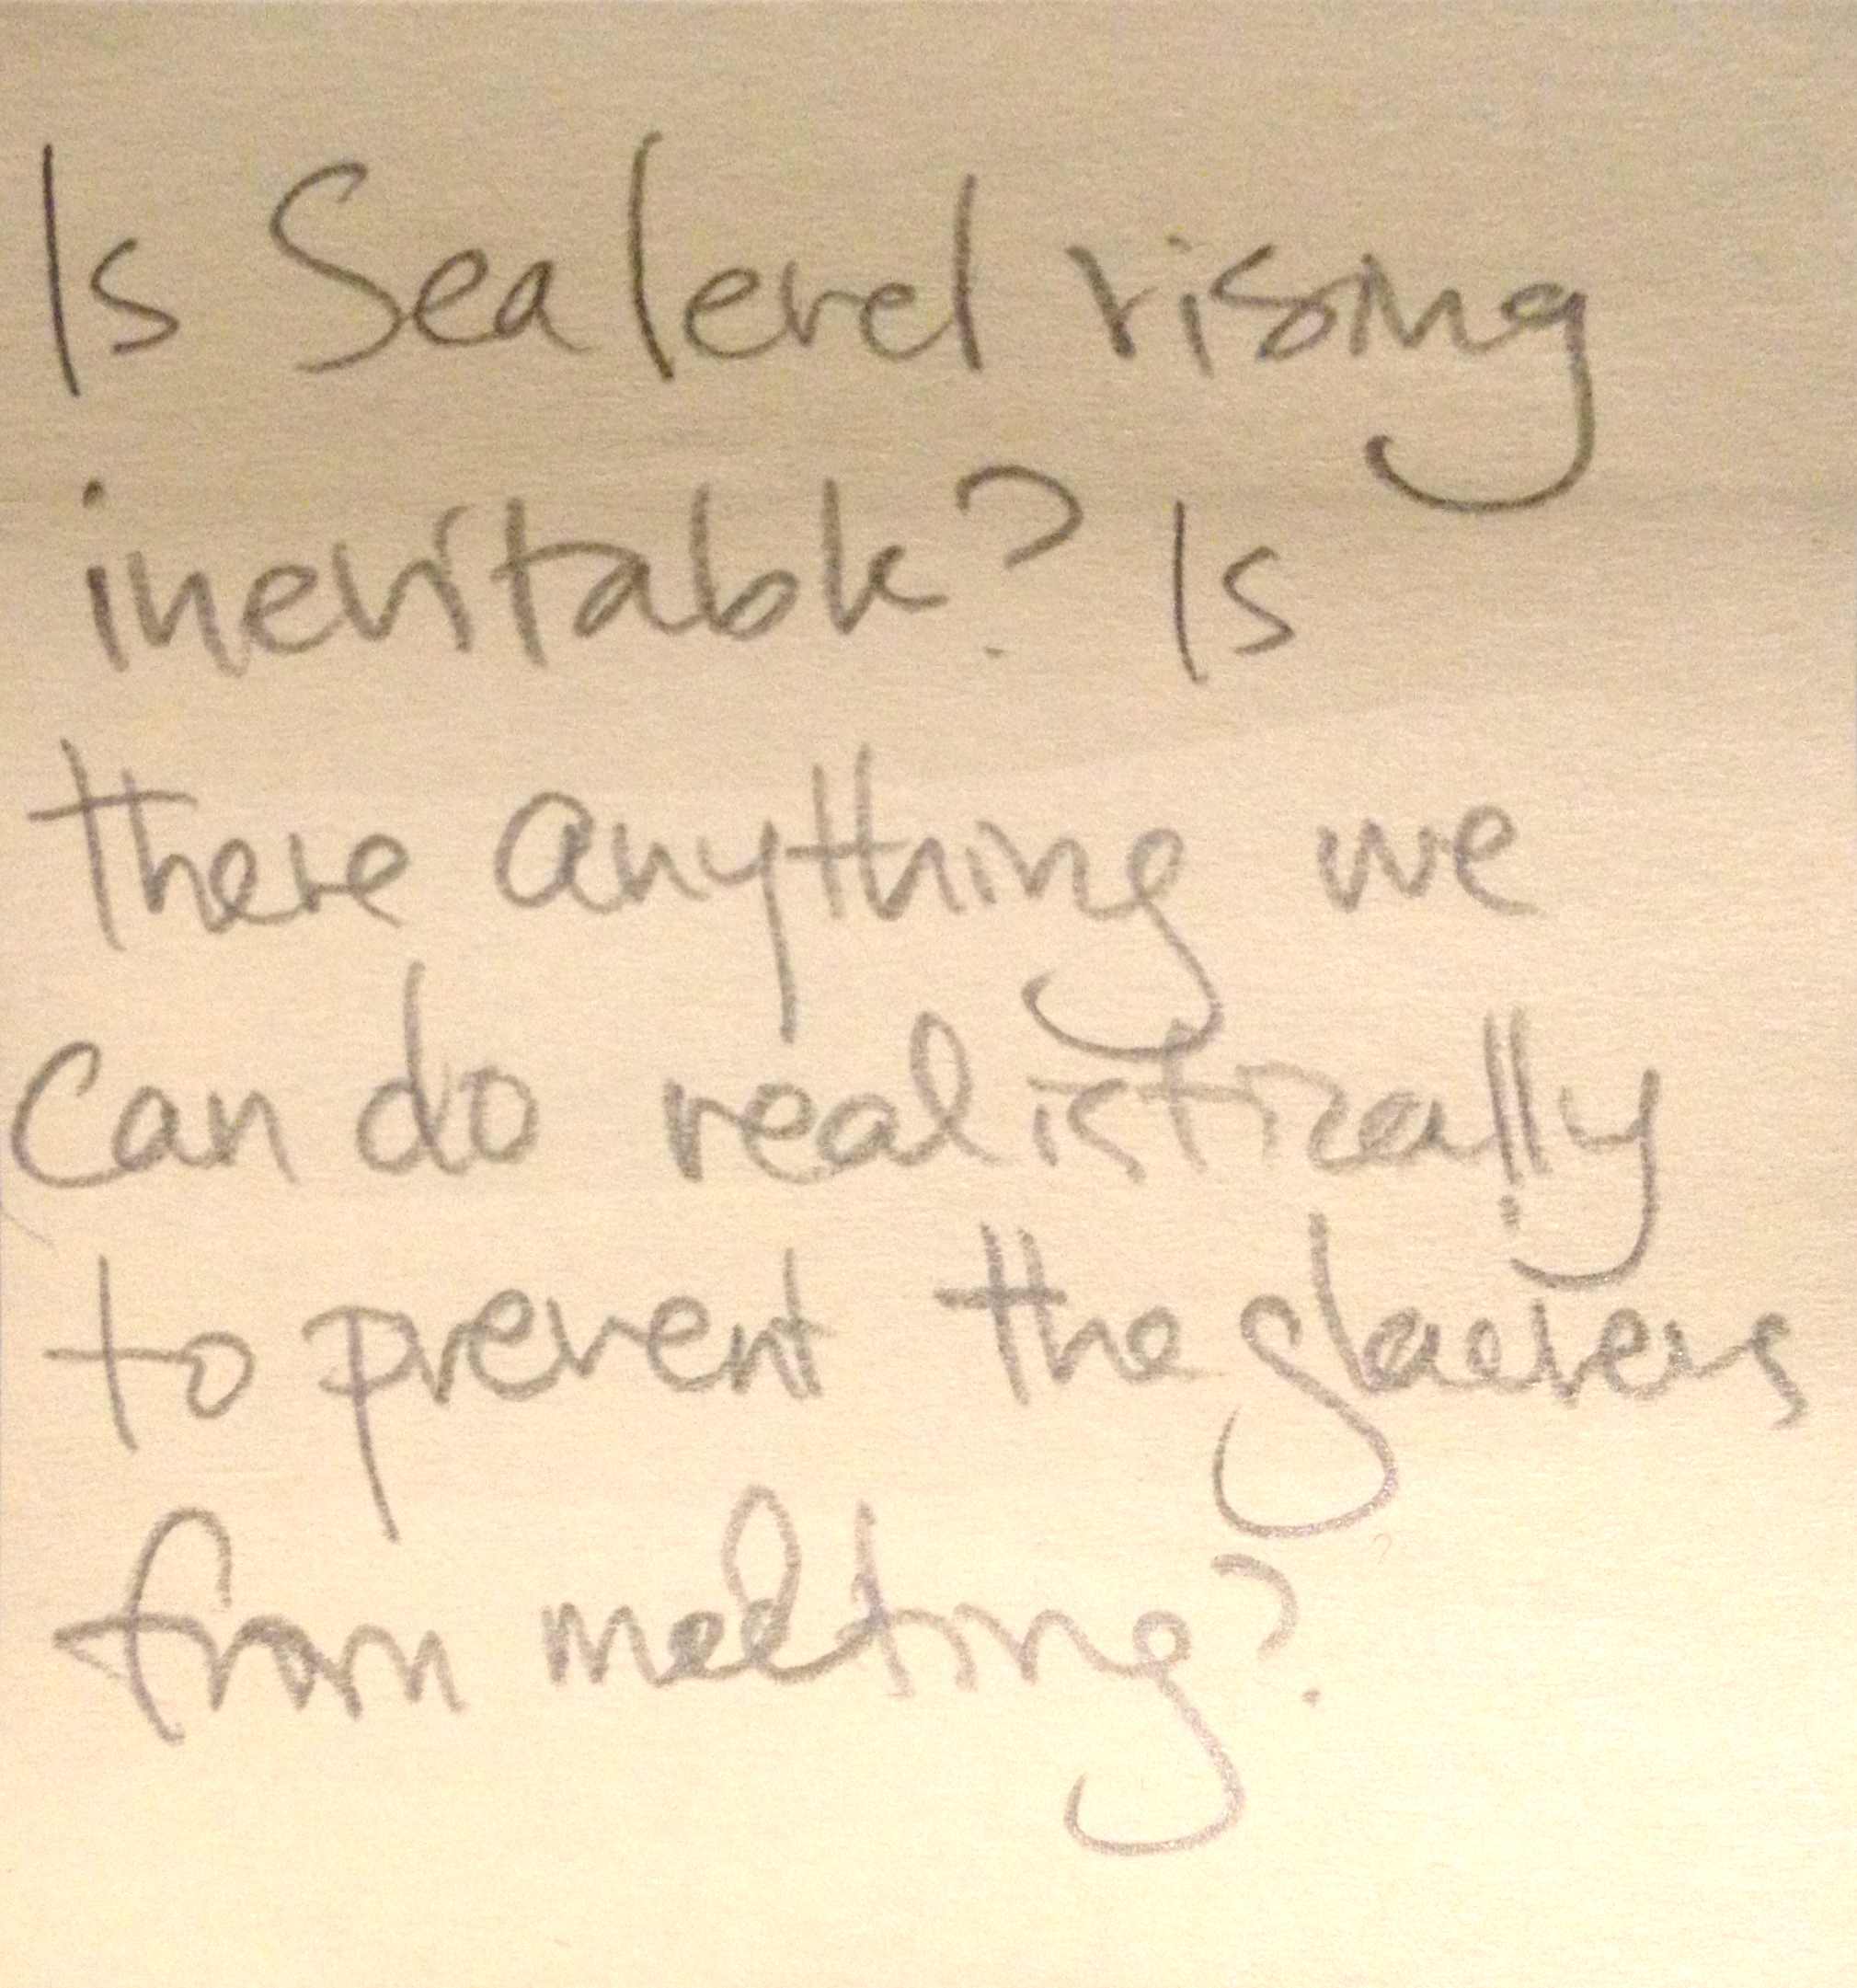 Is Sea level rising
inevitable? Is
there anything we
can do realistically
to prevent the glaciers
from melting?